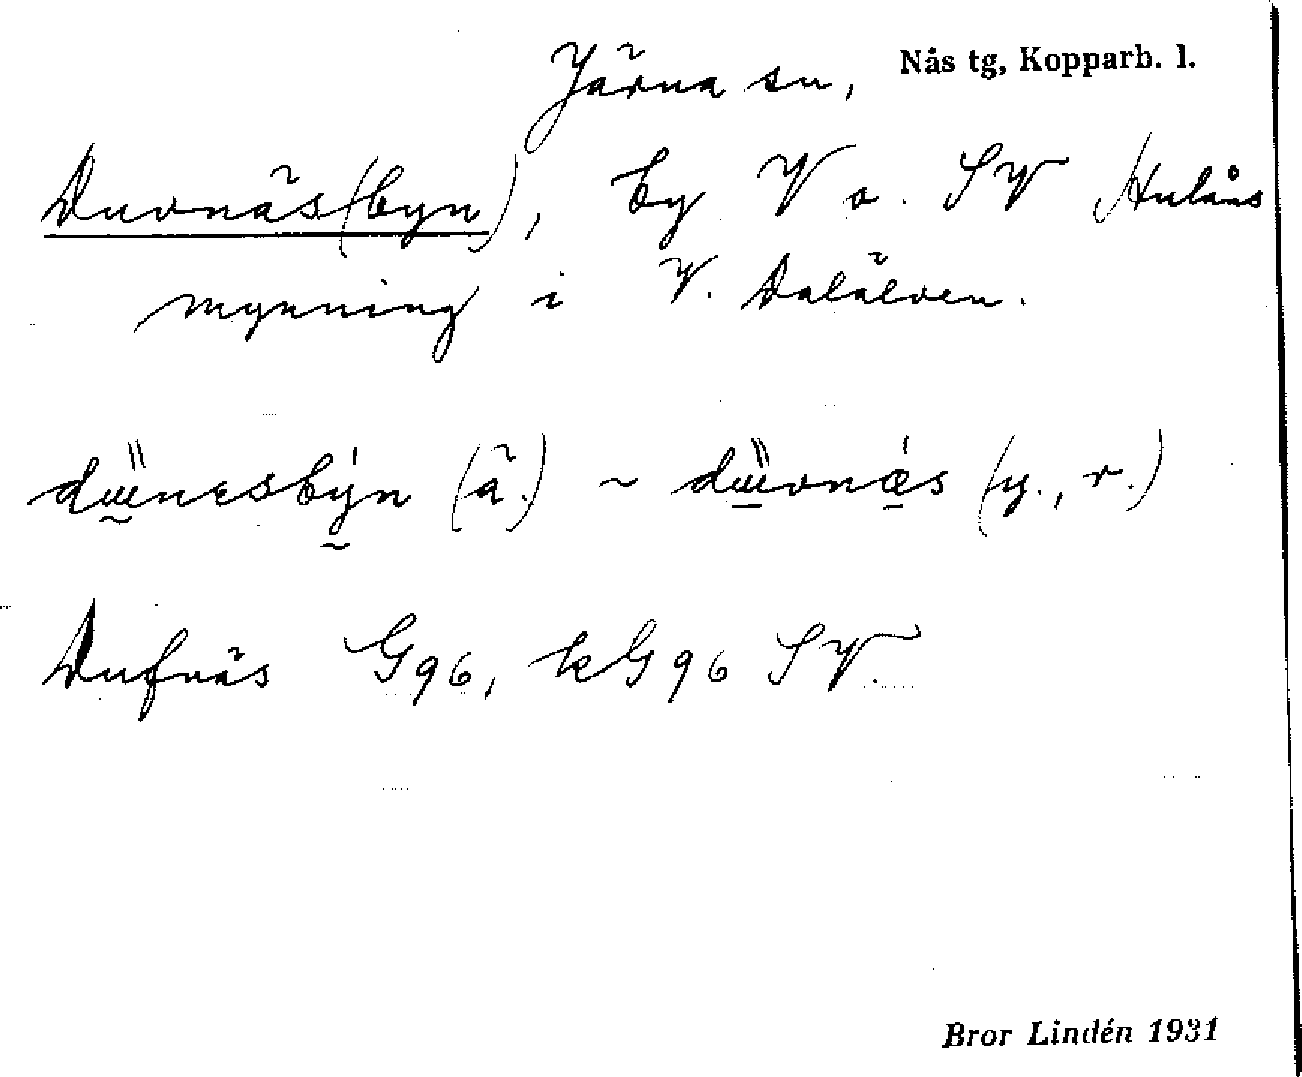 Järna sn, Nås tg, Kopparb. l.
Duvnäs(byn), by V o. SV Hulåns
mynning i V. Dalälven.
(ä.) ~ (y., r.)
Dufnäs G96, kG96 SV.
Bror Lindén 1931